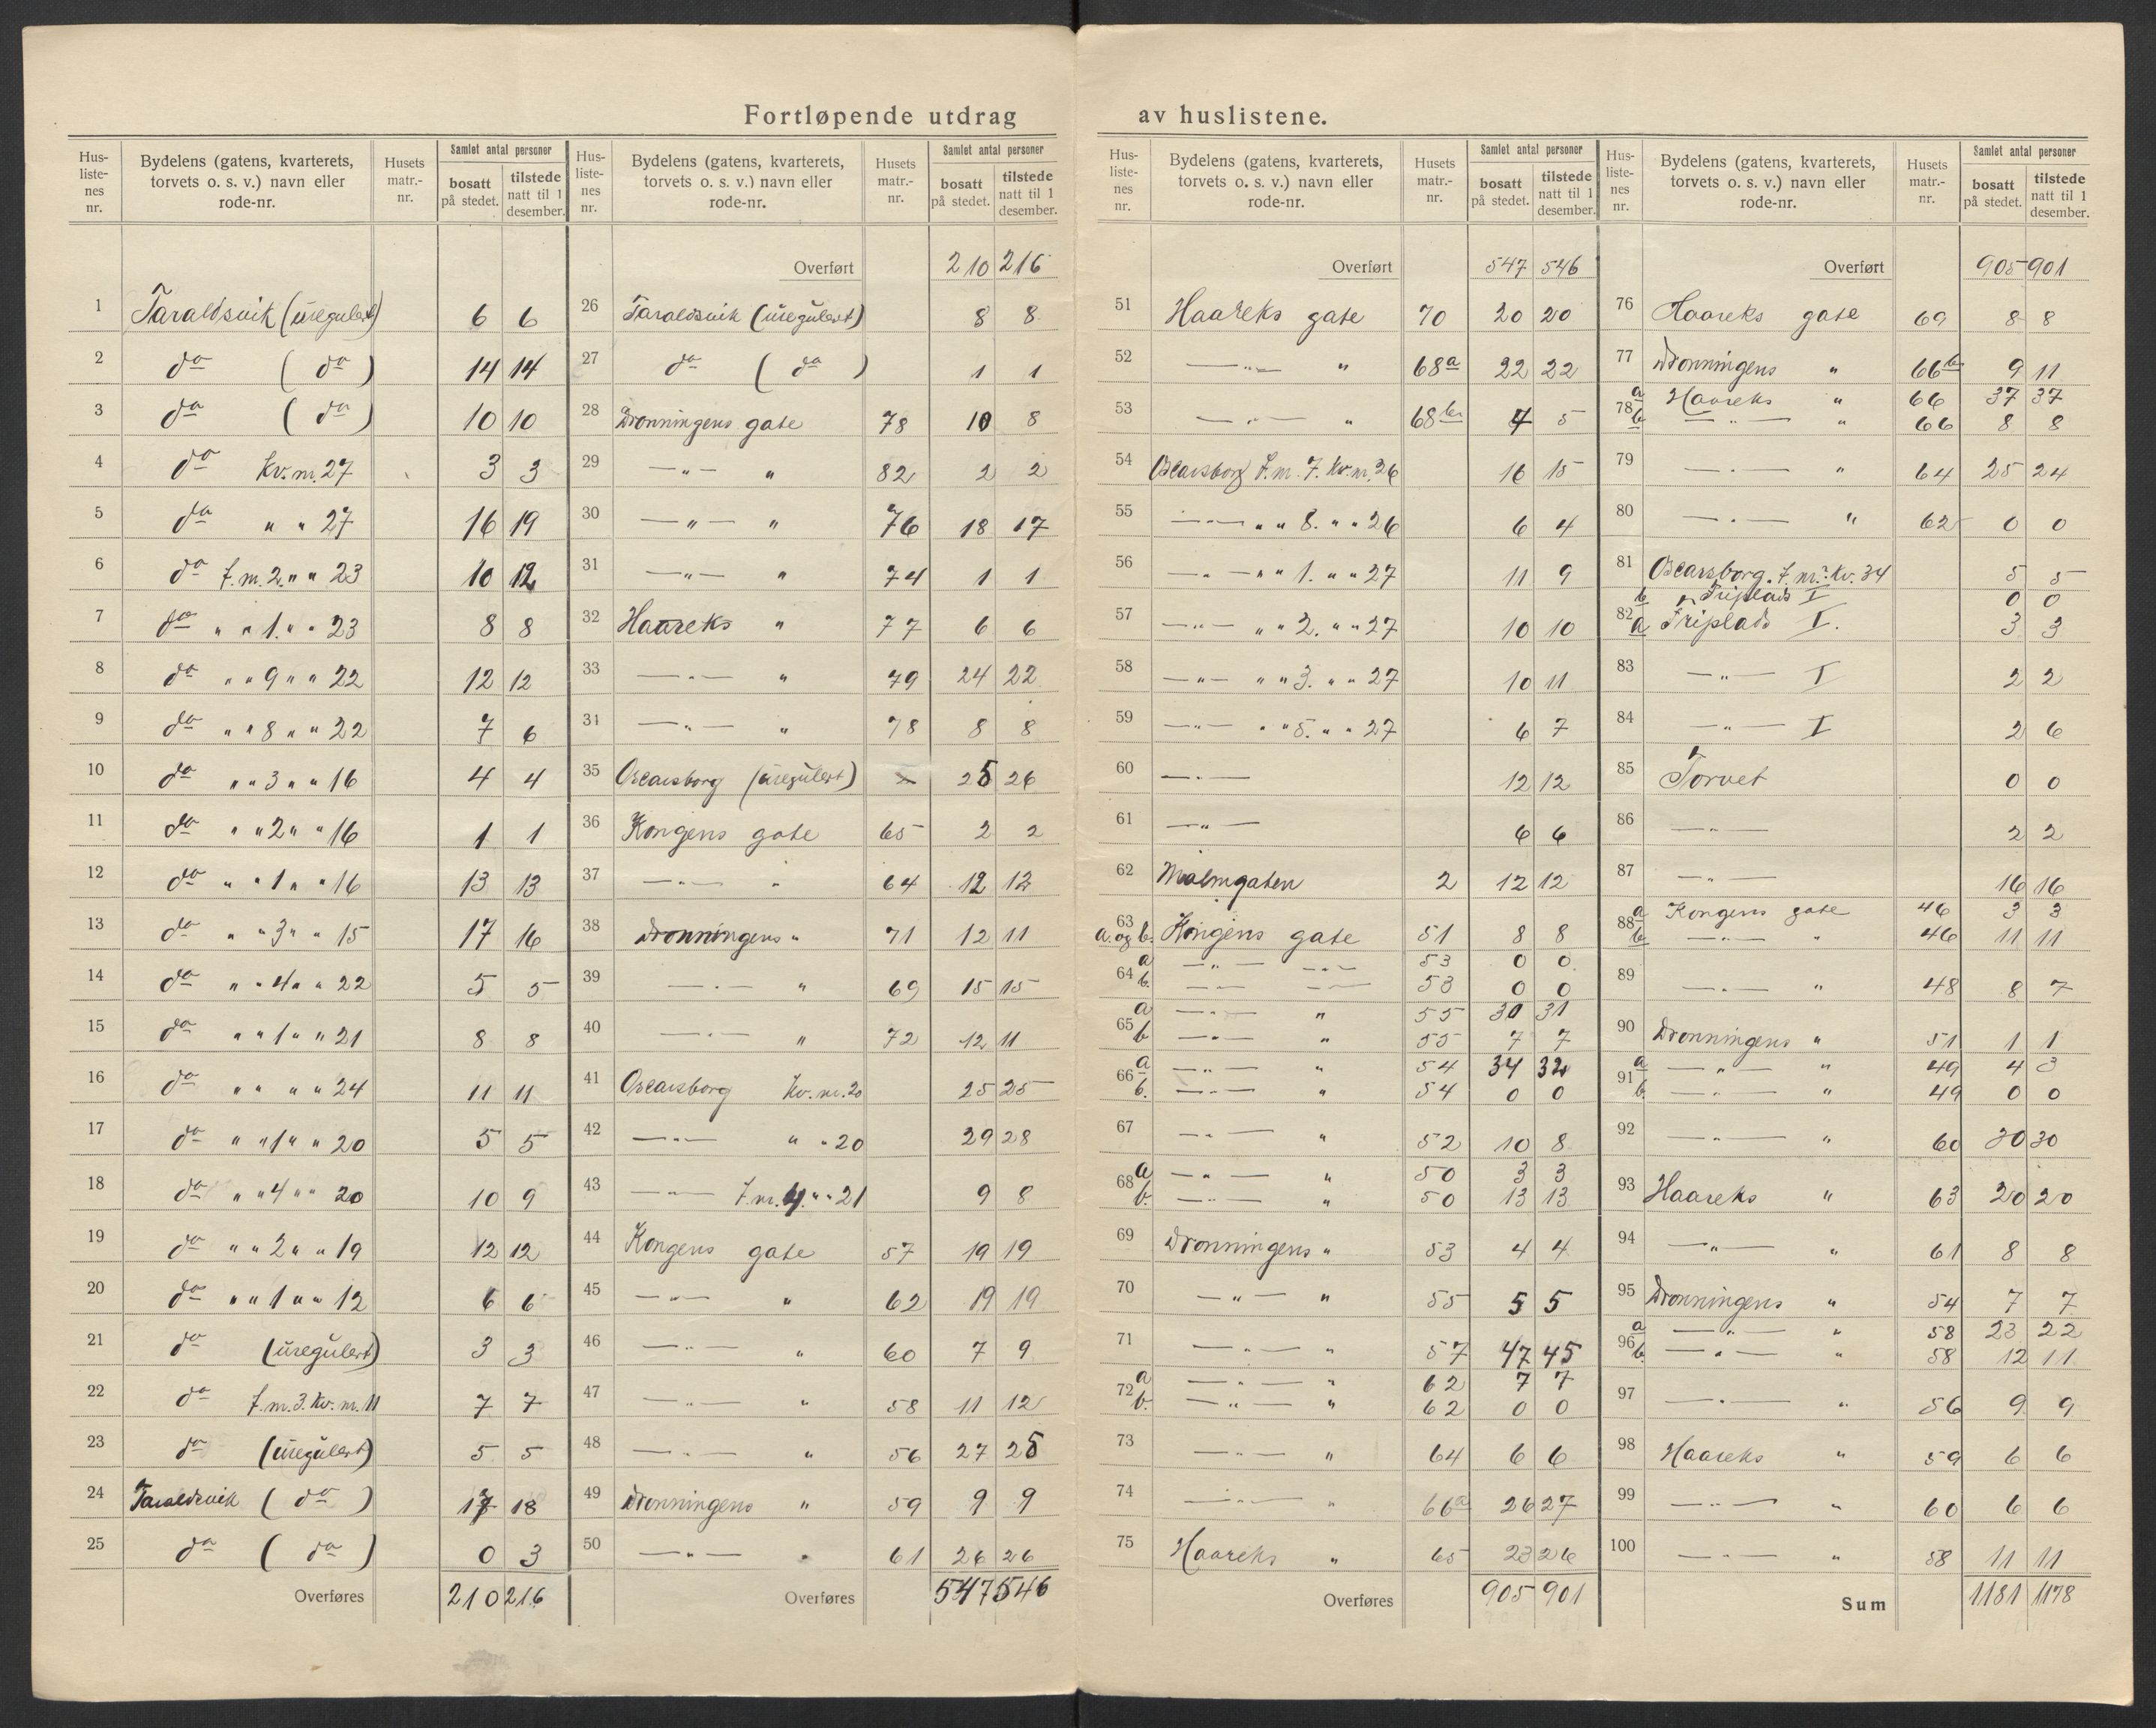 Fortløpende utdrag av huslistene.
Hus-liste-nes nr. | Bydelens (gatens, kvarterets, torvets o. s. v.) navn eller rode-nr. | Husets matr.-nr. | Samlet antal personer bosatt på stedet. | tilstede natt til 1 desember.
1 Taraldsvik (uregulert) 6 6
2 do ( do ) 14 14
3 do ( do ) 10 10
4 do Kv. nr. 27 3 3
5 do " " 27 16 19
6 do T. nr. 2. " " 23 10 12
7 do " " 1. " " 23 8 8
8 do " " 9 " " 22 12 12
9 do " " 8 " " 22 7 6
10 do " " 3 " " 16 4 4
11 do " " 2 " " 16 1 1
12 do " " 1 " " 16 13 13
13 do " " 3 " " 15 17 16
14 do " " 4 " " 22 5 5
15 do " " 1 " " 21 8 8
16 do " " " " 24 11 11
17 do " " 1 " " 20 5 5
18 do " " 4 " " 20 10 9
19 do " " 2 " " 19 12 12
20 do " " 1 " " 12 6 6
21 do (uregulert) 3 3
22 do T. nr. 3. Kv. nr. 11 7 7
23 do (uregulert) 5 5
24 Taraldsvik ( do ) 17 18
25 do ( do ) 0 3
Overføres 210 216
Hus-liste-nes nr. | Bydelens (gatens, kvarterets, torvets o. s. v.) navn eller rode-nr. | Husets matr.-nr. | Samlet antal personer bosatt på stedet. | tilstede natt til 1 desember.
Overført 210 216
26 Taraldsvik (uregulert) 8 8
27 do ( do ) 1 1
28 Dronningens gate 78 10 8
29 — " — " 82 2 2
30 — " — " 76 18 17
31 — " — " 74 1 1
32 Haareks " 77 6 6
33 — " — " 79 24 22
34 — " — " 78 8 8
35 Oscarsborg (uregulert) 25 26
36 Kongens gate 65 2 2
37 — " — " 64 12 12
38 Dronningens " 71 12 11
39 — " — " 69 15 15
40 — " — " 72 12 11
41 Oscarsborg Kv. nr. 20 25 25
42 — " — " " 20 29 28
43 — " — T. nr. 4. " " 21 9 8
44 Kongens gate 57 19 19
45 — " — " 62 19 19
46 — " — " 60 7 9
47 — " — " 58 11 12
48 — " — " 56 27 25
49 Dronningens " 59 9 9
50 — " — " 61 26 26
Overføres 547 546
Hus-liste-nes nr. | Bydelens (gatens, kvarterets, torvets o. s. v.) navn eller rode-nr. | Husets matr.-nr. | Samlet antal personer bosatt på stedet. | tilstede natt til 1 desember.
Overført 547 546
51 Haareks gate 70 20 20
52 — " — " 68a 22 22
53 — " — " 68b 7 5
54 Oscarsborg T. nr. 7. Kv. nr. 26 16 15
55 — " — " " 8. " " 26 6 4
56 — " — " " 1. " " 27 11 9
57 — " — " " 2. " " 27 10 10
58 — " — " " 3. " " 27 10 11
59 — " — " " 5. " " 27 6 7
60 — " — 12 12
61 — " — 6 6
62 Malmgaten 2 12 12
63 a. og b. Kongens gate 51 8 8
64 a — " — — " — 53 0 0
b. — " — — " — 53 0 0
65 a — " — " 55 30 31
b — " — " 55 7 7
66 a — " — " 54 34 32
b. — " — " 54 0 0
67 — " — " 52 10 8
68 a — " — " 50 3 3
b. — " — " 50 13 13
69 Dronningens " 53 4 4
70 — " — " 55 5 5
71 — " — " 57 47 45
72 a — " — " 62 7 7
b. — " — " 62 0 0
73 — " — " 64 6 6
74 — " — " 66a 26 27
75 Haareks " 65 23 26
Overføres 905 901
Hus-liste-nes nr. | Bydelens (gatens, kvarterets, torvets o. s. v.) navn eller rode-nr. | Husets matr.-nr. | Samlet antal personer bosatt på stedet. | tilstede natt til 1 desember.
Overført 905 901
76 Haareks gate 69 8 8
77 Dronningens " 66b 9 11
78 a Haareks " 66 37 37
b — " — " 66 8 8
79 — " — " 64 25 24
80 — " — " 62 0 0
81 Oscarsborg. T. nr. Kv. 34 5 5
b " Friplads I 0 0
82 a Friplads I. 3 3
83 — " — I 2 2
84 — " — I 2 6
85 Torvet 0 0
86 — " — 2 2
87 — " — 16 16
88 a Kongens gate 46 3 3
b — " — " 46 11 11
89 — " — " 48 8 7
90 Dronningens " 51 1 1
91 a — " — " 49 4 3
b. — " — " 49 0 0
92 — " — " 60 30 30
93 Haareks " 63 20 20
94 — " — " 61 8 8
95 Dronningens " 54 7 7
96 a — " — " 58 23 22
b. — " — " 58 12 11
97 — " — " 56 9 9
98 Haareks " 59 6 6
99 — " — " 60 6 6
100 — " — " 58 11 11
Sum 1181 1178